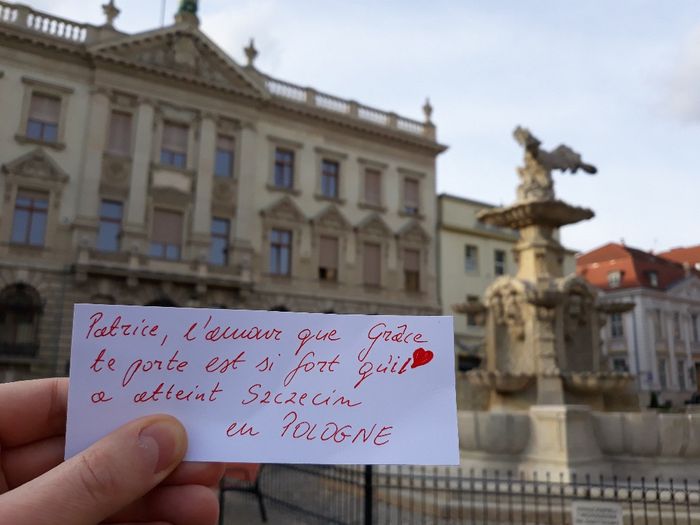 Patrice, l'amour que Grâce
te porte est si fort qu'il
a atteint Szczecin
en POLOGNE